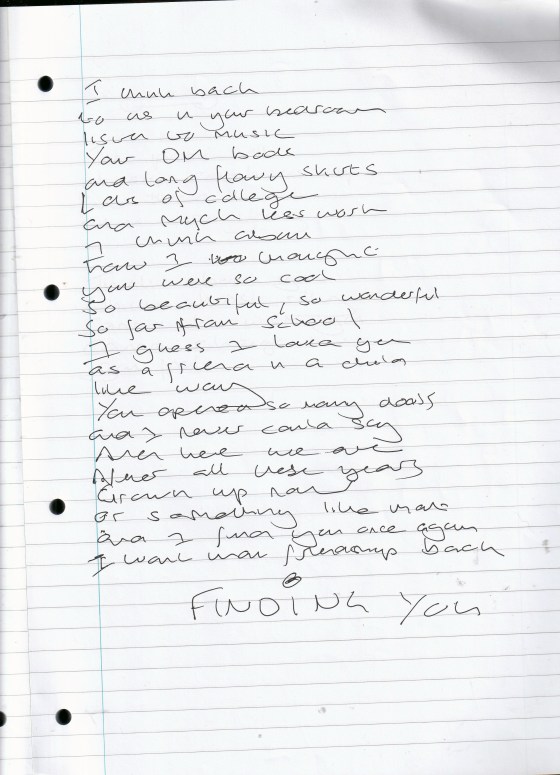 I think back
to us in your bedroom
listen to music
Your DM boots
and long flowy skirts
Lots of college
and much less work
I think about
how I thought
you were so cool
So beautiful, so wonderful
So far from school
I guess I loved you
as a friend in a child
like way
You opened so many doors
and I never could say
And here we are
After all these years
Grown up now
or something like that
and I find you once again
I want that friendship back
FINDING YOU